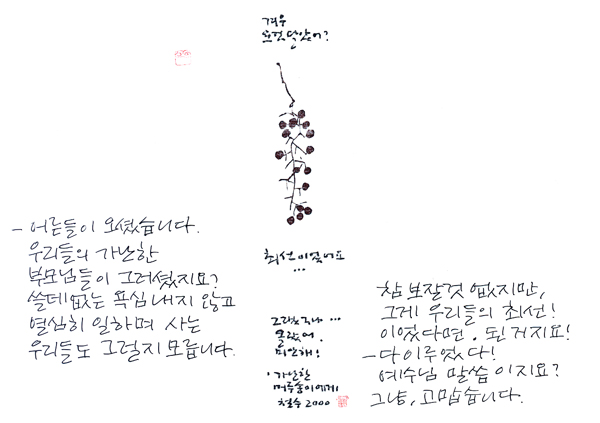 겨우
요것 달았어?
최선이었어요
...
그랬구나...
몰랐어.
미안해!
· 가난한
머루송이에게
철수 2000
- 어른들이 오셨습니다.
우리들의 가난한
부모님들이 그러셨지요?
쓸데없는 욕심내지 않고
열심히 일하며 사는
우리들도 그럴지 모릅니다.
참 보잘것 없지만,
그게 우리들의 최선!
이었다면. 된거지요!
- 다 이루었다!
예수님 말씀이지요?
그냥, 고맙습니다.